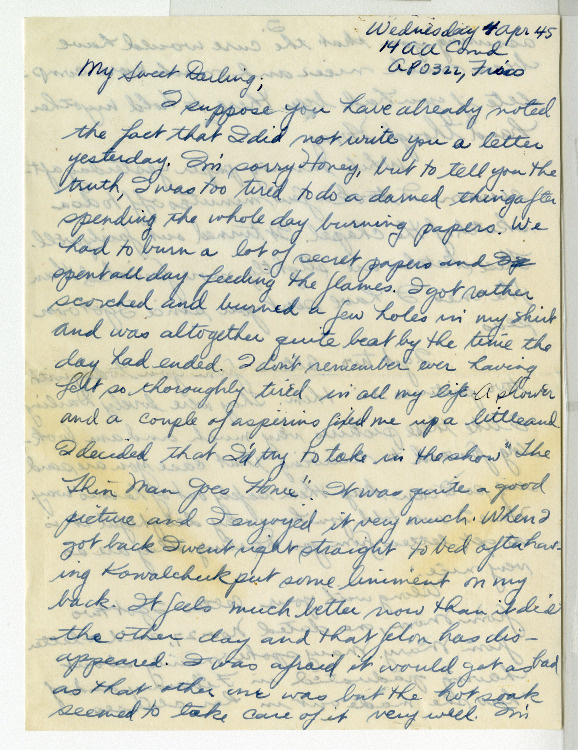 Wednesday 4 Apr 45
14 AA Comd
APO 322, Frisco
My Sweet Darling;
I suppose you have already noted
the fact that I did not write you a letter
yesterday. I'm sorry Honey, but to tell you the
truth, I was too tired to do a darned thing after
spending the whole day burning papers. We
had to burn a lot of secret papers and
spent all day feeding the flames. I got rather
scorched and burned a few holes in my shirt
and was altogether quite beat by the time the
day had ended. I don't remember ever having
felt so thoroughly tired in all my life. A shower
and a couple of aspirins fixed me up a little and
I decided that I'd try to take in the show "The
Thin Man Goes Home". It was quite a good
picture and I enjoyed it very much. When I
got back I went right straight to bed after hav-
ing Kowalchuk put some liniment on my
back. It feels much better now than it did
the other day and that felon has dis-
appeared. I was afraid it would get as bad
as that other one was but the hot soak
seemed to take care of it very well. I'm